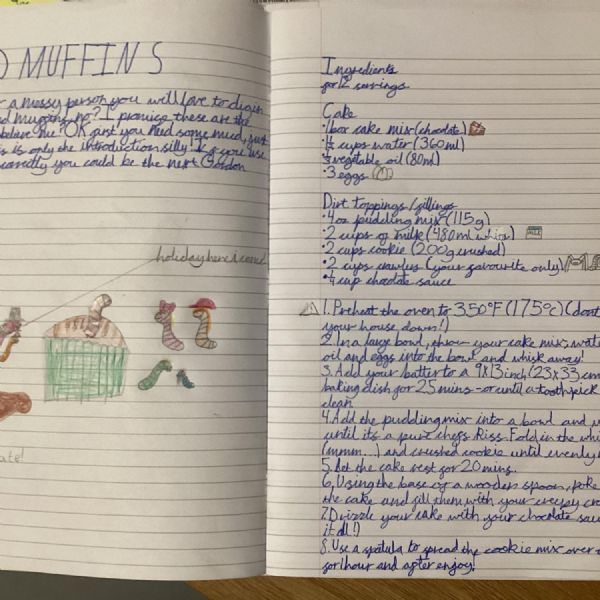 MUFFINS
a messy person you will love to dig in
mud muffins, no? I promise these are the
believe me? OK just you need some mud, just
is is only the introduction silly! If you use
correctly you could be the next Gordon
holiday here I come!
ate!
Ingredients
for 12 servings
Cake
• 1 box cake mix (chocolate)
cups water (360ml)
• ⅓ vegetable oil (80ml)
• 3 eggs
Dirt toppings/fillings
• 4 oz pudding mix (115g)
• 2 cups of milk (480ml
• 2 cups cookie (200g crushed)
• 2 cups crawlies (your favourite only)
• ¼ cup chocolate sauce
1. Preheat the oven to 350°F (175°C) (dont
your house down!)
2. In a large bowl, throw your cake mix, wate
oil and eggs into the bowl and whisk away!
3. Add your batter to a 9x13 inch (23x33 cm
baking dish for 25 mins - or until a toothpick
clean
4. Add the pudding mix into a bowl and
until its a pure chefs kiss. Fold in the whi
(mmm...) and crushed cookie until evenly
5. Let the cake rest for 20 mins.
6. Using the base of a wooden spoon, poke
the cake and fill them with your creepy cra
7. Drizzle your cake with your chocolate sau
it all!)
8. Use a spatula to spread the cookie mix over
for 1 hour and after enjoy!